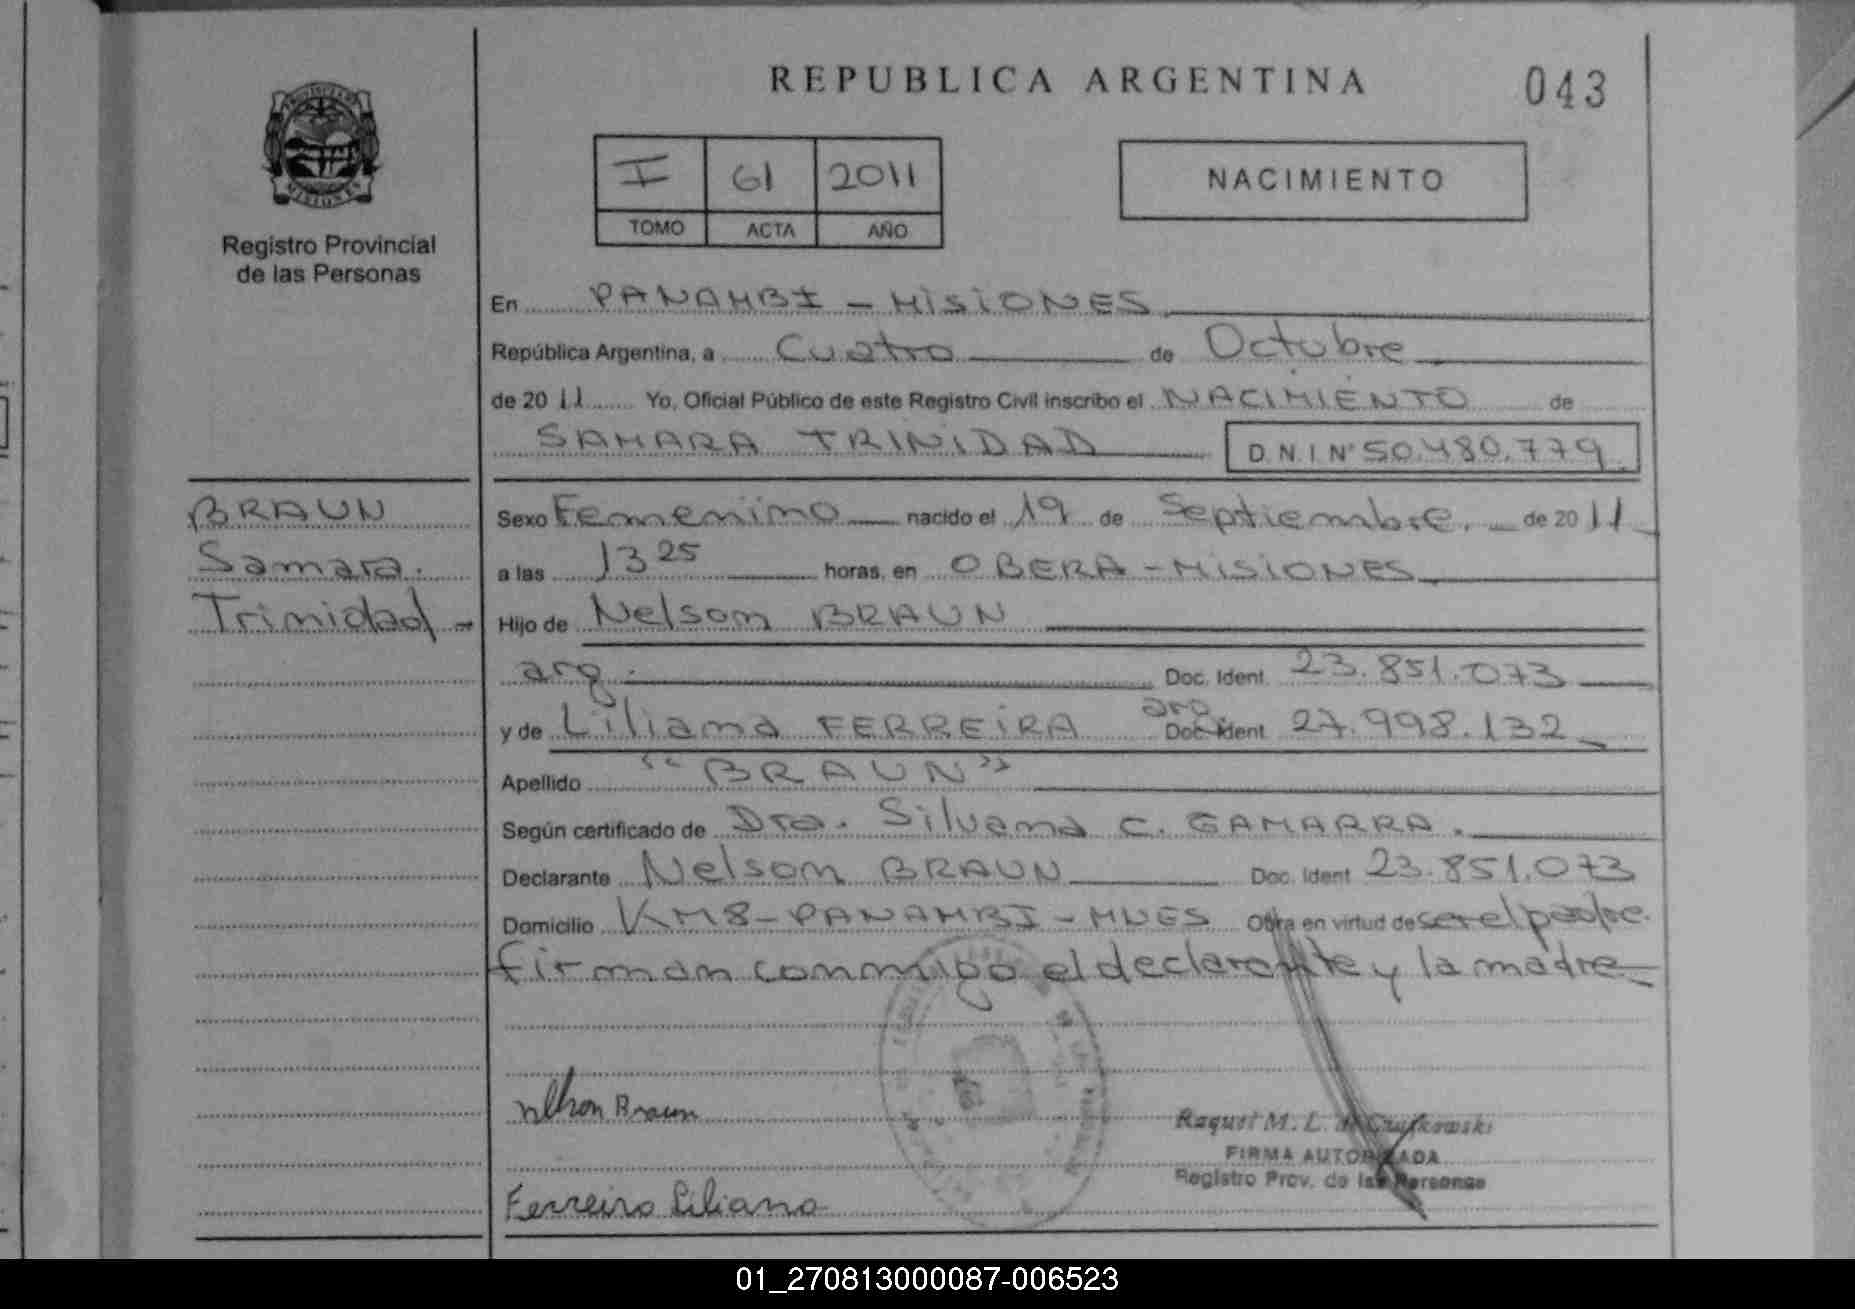 REPUBLICA ARGENTINA
043
PROVINCIA DE
MISIONES
Registro Provincial
de las Personas
I 61 2011
TOMO ACTA AÑO
NACIMIENTO
En PANAMBI - MISIONES
República Argentina, a Cuatro de Octubre
de 2011 Yo, Oficial Público de este Registro Civil inscribo el NACIMIENTO de
SAMARA TRINIDAD D.N.I. Nº 50.480.779.
BRAUN
Samara.
Trinidad -
Sexo Femenino nacido el 19 de Septiembre. de 2011
a las 13 25 horas, en OBERA - MISIONES
Hijo de Nelson BRAUN
arg. Doc. Ident. 23.851.073
y de Liliana FERREIRA arg Doc. Ident 27.998.132
Apellido "BRAUN"
Según certificado de Dra. Silvana C. GAMARRA.
Declarante Nelson BRAUN Doc. Ident 23.851.073
Domicilio KM8 - PANAMBI - MNES Obra en virtud de ser el padre.
firman conmigo el declarante y la madre
Nelson Braun
Raquel M. L. de
FIRMA AUTORIZADA
Registro Prov. de las Personas
Ferreira Liliana
01_270813000087-006523